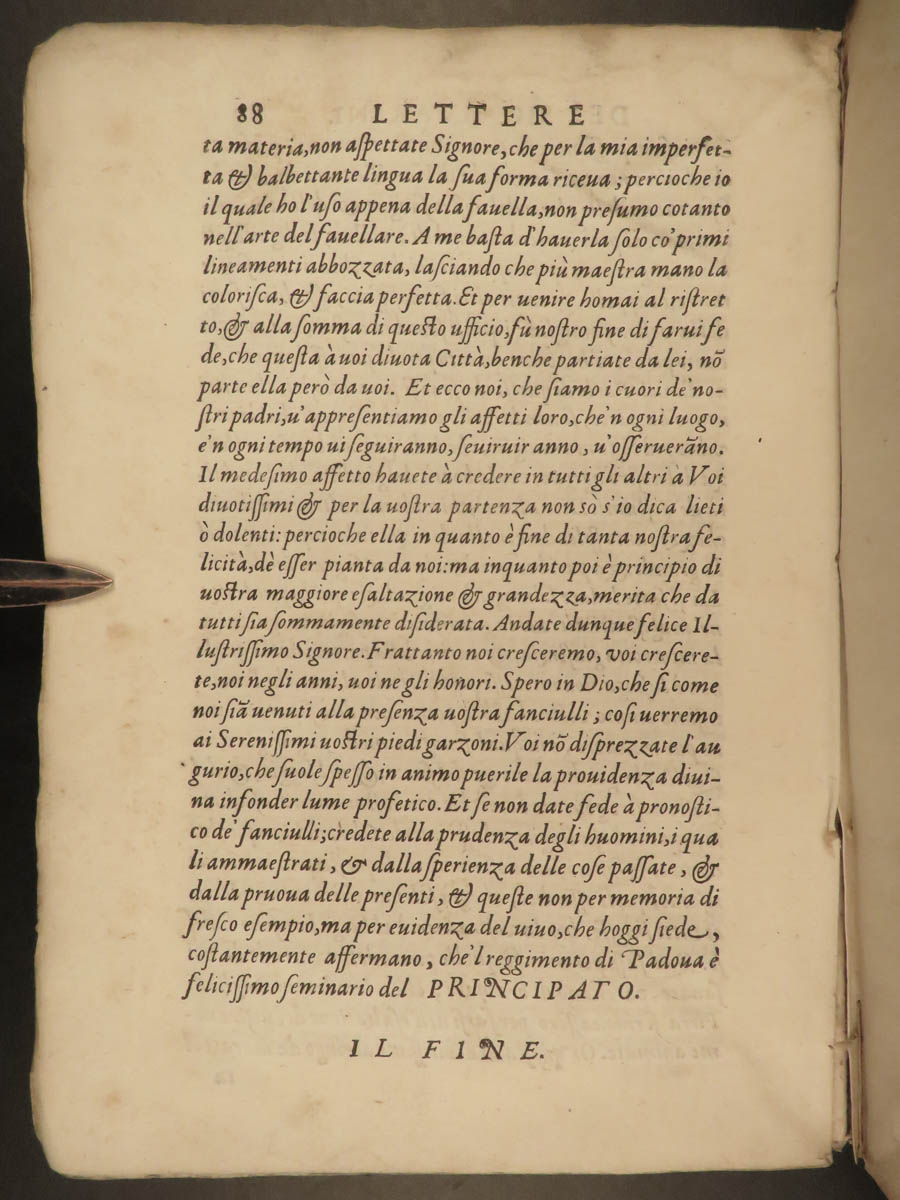 88 LETTERE
ta materia,non aſpettate Signore,che per la mia imperfet-
ta & balbettante lingua la ſua forma riceua; percioche io
il quale ho l'uſo appena della fauella,non preſumo cotanto
nell'arte del fauellare. A me baſta d'hauerla ſolo co' primi
lineamenti abbozzata, laſciando che più maeſtra mano la
coloriſca, & faccia perfetta. Et per uenire homai al riſtret
to,& alla ſomma di queſto ufficio,fù noſtro fine di farui fe
de,che queſta à uoi diuota Città,benche partiate da lei, nõ
parte ella però da uoi. Et ecco noi, che ſiamo i cuori de' no-
ſtri padri,u'appreſentiamo gli affetti loro,che'n ogni luogo,
e'n ogni tempo ui ſeguiranno, ſeuiruir anno, u'oſſeruerãno.
Il medeſimo affetto hauete à credere in tutti gli altri à Voi
diuotiſſimi & per la uoſtra partenza non sò s'io dica lieti
ò dolenti: percioche ella in quanto è fine di tanta noſtra fe-
licità,dè eſſer pianta da noi:ma inquanto poi è principio di
uoſtra maggiore eſaltazione & grandezza,merita che da
tutti ſia ſommamente diſiderata. Andate dunque felice Il-
luſtriſſimo Signore. Frattanto noi creſceremo, voi creſcere-
te,noi negli anni, uoi ne gli honori. Spero in Dio,che ſi come
noi ſiã uenuti alla preſenza uoſtra fanciulli; coſi uerremo
ai Sereniſſimi uoſtri piedi garzoni. Voi nõ diſprezzate l'au
gurio,che ſuole ſpeſſo in animo puerile la prouidenza diui-
na infonder lume profetico. Et ſe non date fede à pronoſti-
co de' fanciulli;credete alla prudenza degli huomini,i qua
li ammaeſtrati, & dalla ſperienza delle coſe paſſate, &
dalla pruoua delle preſenti, & queſte non per memoria di
freſco eſempio,ma per euidenza del uiuo,che hoggi ſiede,
coſtantemente affermano, che'l reggimento di Padoua è
feliciſſimo ſeminario del PRINCIPATO.
IL FINE.